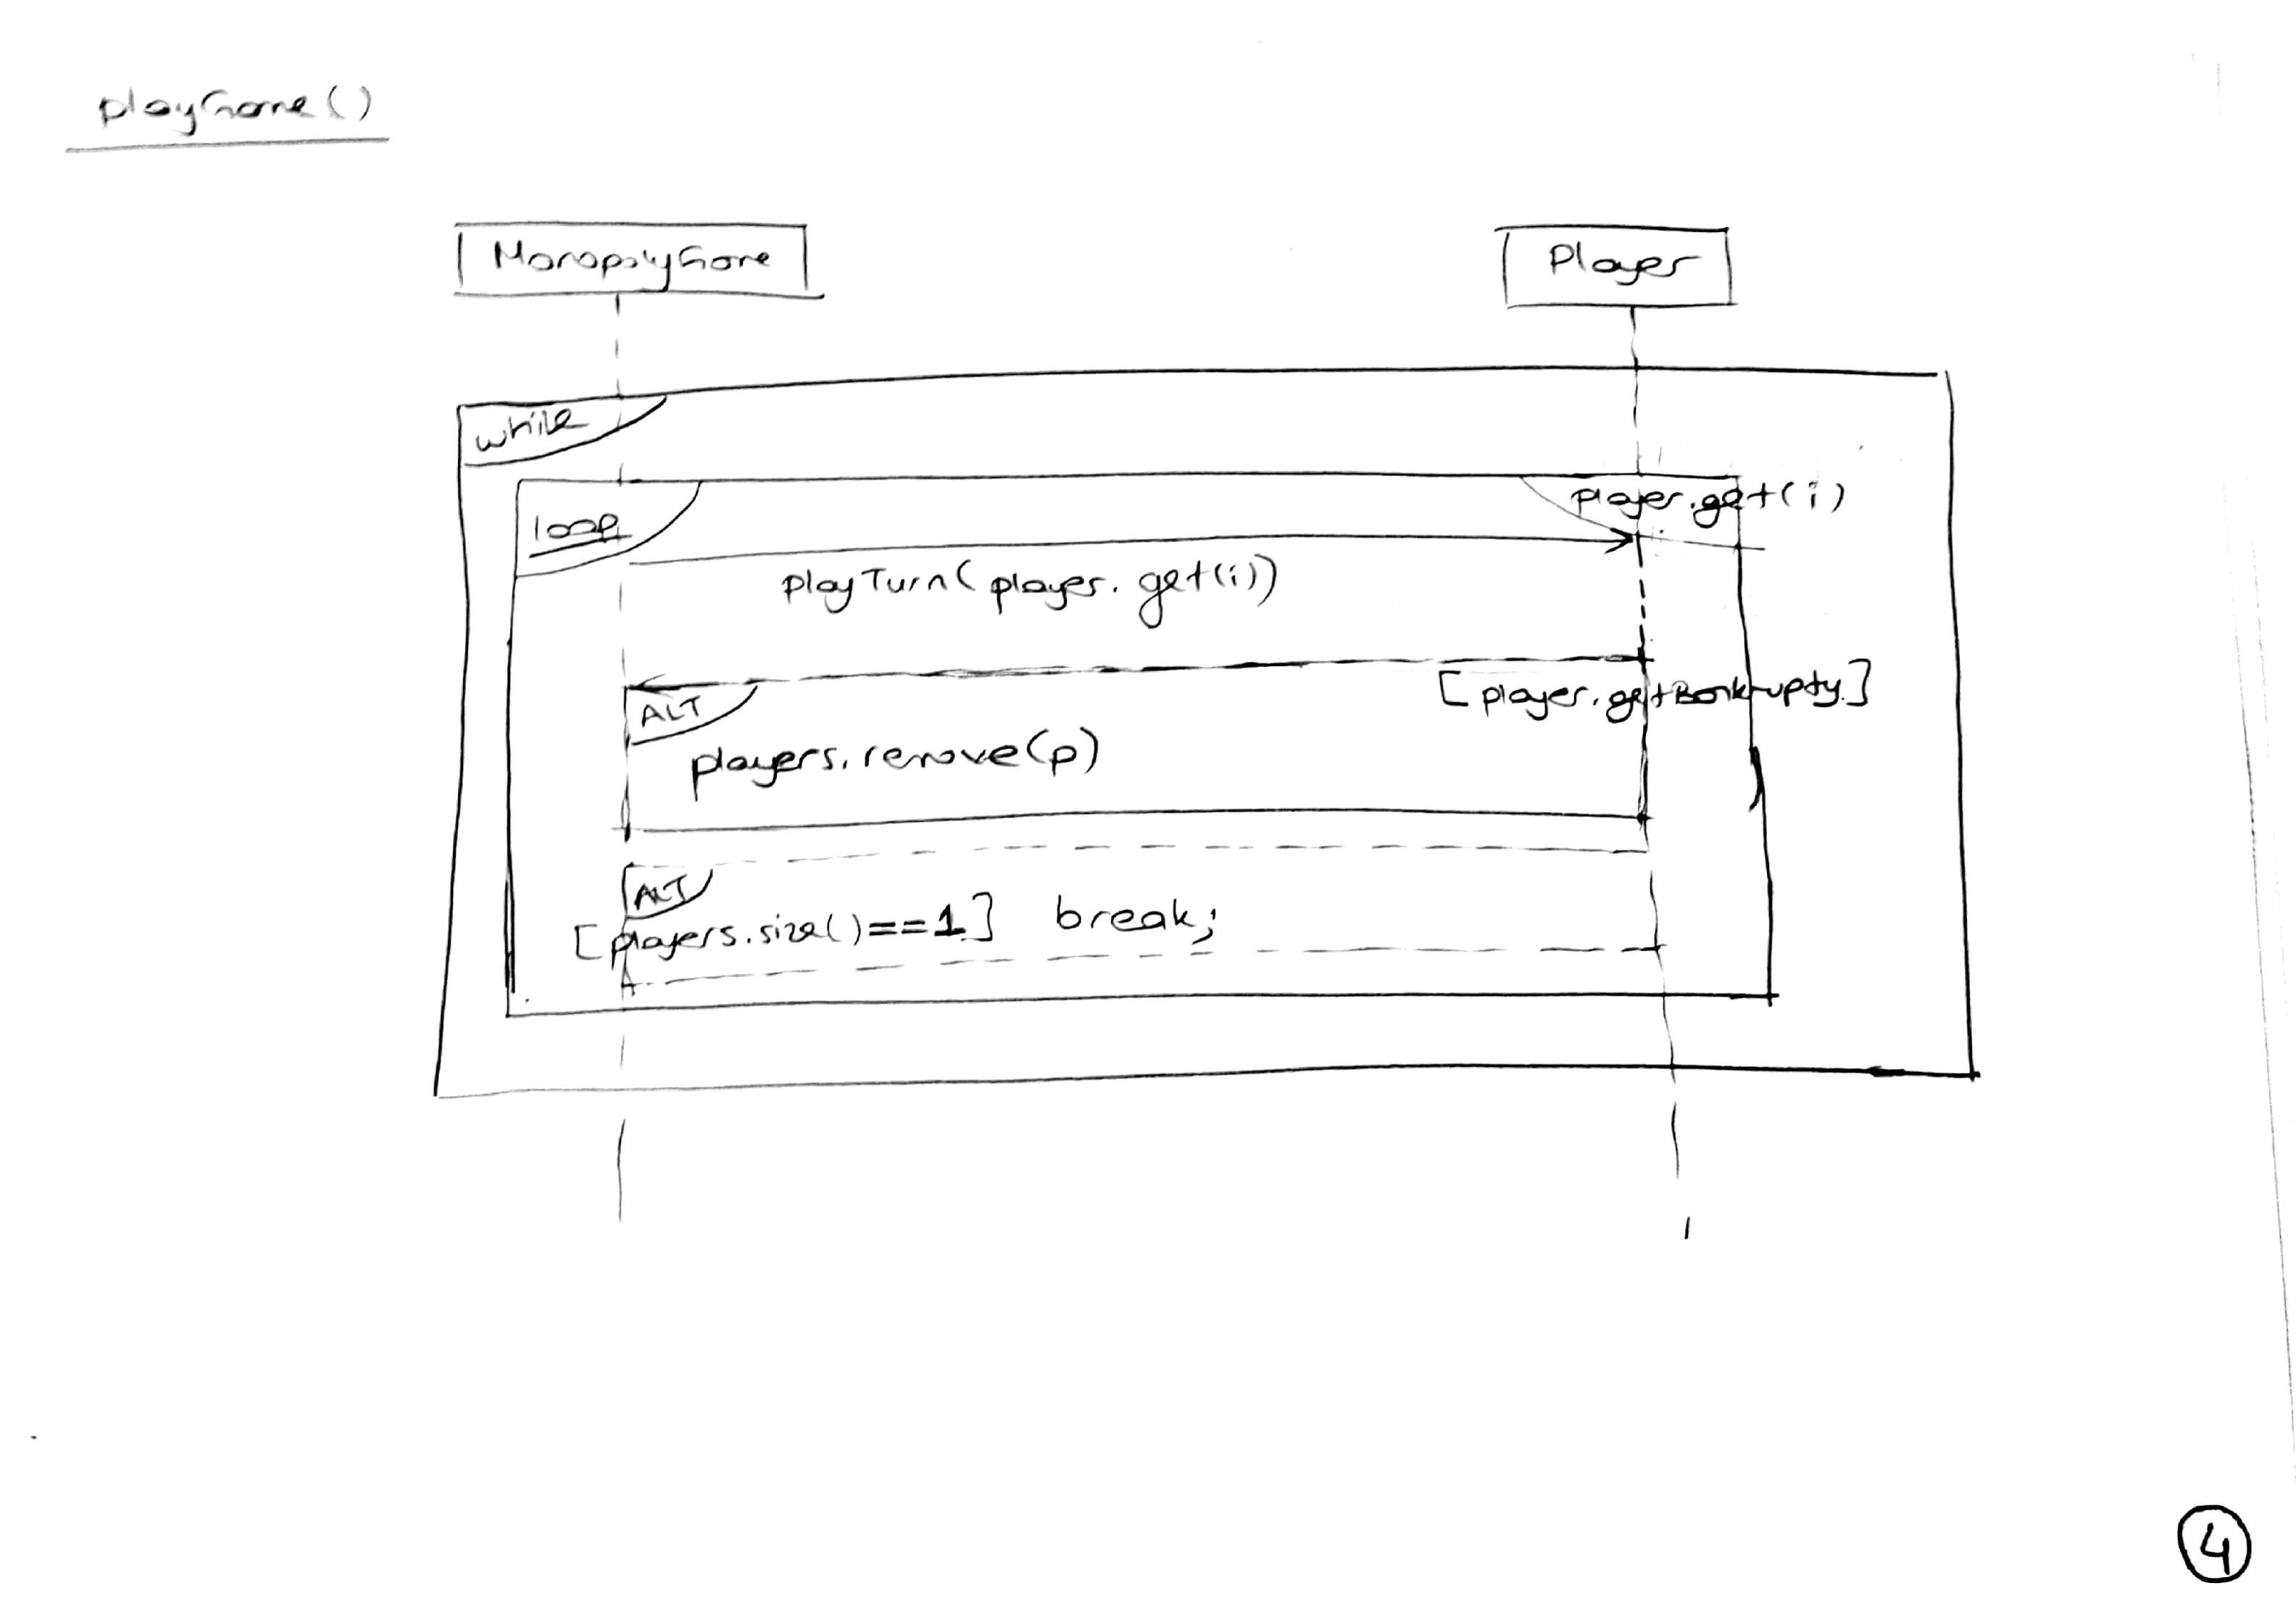 playGame()
MonopolyGame
Player
while
player.get(i)
loop
playTurn(player.get(i))
[player.getBankrupty]
ALT
players.remove(p)
ALT
[players.size()==1] break;
4